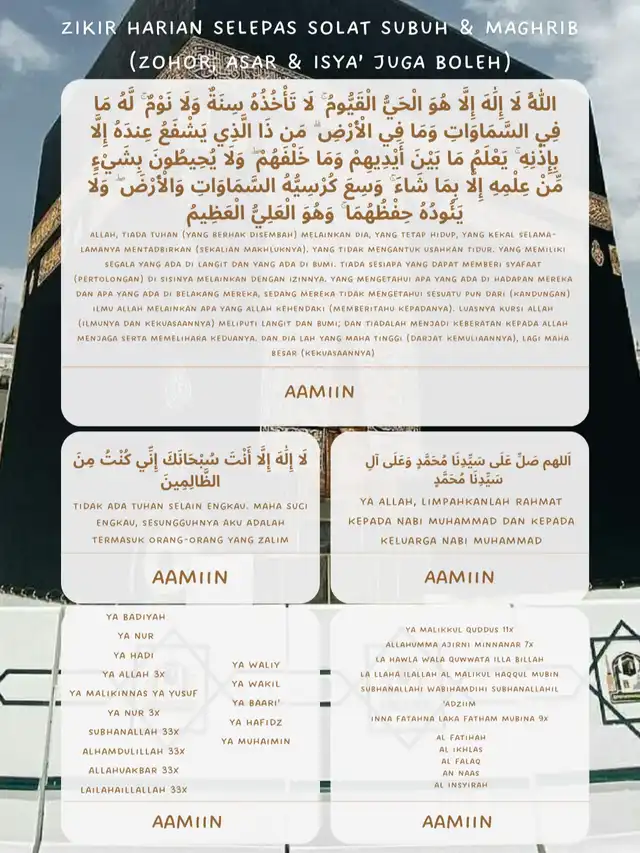 ZIKIR HARIAN SELEPAS SOLAT SUBUH & MAGHRIB
(ZOHOR, ASAR & ISYA' JUGA BOLEH)
اللَّهُ لَا إِلَٰهَ إِلَّا هُوَ الْحَيُّ الْقَيُّومُ ۚ لَا تَأْخُذُهُ سِنَةٌ وَلَا نَوْمٌ ۚ لَّهُ مَا
فِي السَّمَاوَاتِ وَمَا فِي الْأَرْضِ ۗ مَن ذَا الَّذِي يَشْفَعُ عِندَهُ إِلَّا
بِإِذْنِهِ ۚ يَعْلَمُ مَا بَيْنَ أَيْدِيهِمْ وَمَا خَلْفَهُمْ ۖ وَلَا يُحِيطُونَ بِشَيْءٍ
مِّنْ عِلْمِهِ إِلَّا بِمَا شَاءَ ۚ وَسِعَ كُرْسِيُّهُ السَّمَاوَاتِ وَالْأَرْضَ ۖ وَلَا
يَئُودُهُ حِفْظُهُمَا ۚ وَهُوَ الْعَلِيُّ الْعَظِيمُ
ALLAH, TIADA TUHAN (YANG BERHAK DISEMBAH) MELAINKAN DIA, YANG TETAP HIDUP, YANG KEKAL SELAMA-
LAMANYA MENTADBIRKAN (SEKALIAN MAKHLUKNYA). YANG TIDAK MENGANTUK USAHKAN TIDUR. YANG MEMILIKI
SEGALA YANG ADA DI LANGIT DAN YANG ADA DI BUMI. TIADA SESIAPA YANG DAPAT MEMBERI SYAFAAT
(PERTOLONGAN) DI SISINYA MELAINKAN DENGAN IZINNYA. YANG MENGETAHUI APA YANG ADA DI HADAPAN MEREKA
DAN APA YANG ADA DI BELAKANG MEREKA, SEDANG MEREKA TIDAK MENGETAHUI SESUATU PUN DARI (KANDUNGAN)
ILMU ALLAH MELAINKAN APA YANG ALLAH KEHENDAKI (MEMBERITAHU KEPADANYA). LUASNYA KURSI ALLAH
(ILMUNYA DAN KEKUASAANNYA) MELIPUTI LANGIT DAN BUMI; DAN TIADALAH MENJADI KEBERATAN KEPADA ALLAH
MENJAGA SERTA MEMELIHARA KEDUANYA. DAN DIA LAH YANG MAHA TINGGI (DARJAT KEMULIAANNYA), LAGI MAHA
BESAR (KEKUASAANNYA)
AAMIIN
لَا إِلَٰهَ إِلَّا أَنْتَ سُبْحَانَكَ إِنِّي كُنْتُ مِنَ
الظَّالِمِينَ
TIDAK ADA TUHAN SELAIN ENGKAU. MAHA SUCI
ENGKAU, SESUNGGUHNYA AKU ADALAH
TERMASUK ORANG-ORANG YANG ZALIM
AAMIIN
اَللهم صَلِّ عَلَى سَيِّدِنَا مُحَمَّدٍ وَعَلَى آلِ
سَيِّدِنَا مُحَمَّدٍ
YA ALLAH, LIMPAHKANLAH RAHMAT
KEPADA NABI MUHAMMAD DAN KEPADA
KELUARGA NABI MUHAMMAD
AAMIIN
YA BADIYAH
YA NUR
YA HADI
YA ALLAH 3X
YA MALIKINNAS YA YUSUF
YA NUR 3X
SUBHANALLAH 33X
ALHAMDULILLAH 33X
ALLAHUAKBAR 33X
LAILAHAILLALLAH 33X
YA WALIY
YA WAKIL
YA BAARI'
YA HAFIDZ
YA MUHAIMIN
AAMIIN
YA MALIKKUL QUDDUS 11X
ALLAHUMMA AJIRNI MINNANAR 7X
LA HAWLA WALA QUWWATA ILLA BILLAH
LA LLAHA ILALLAH AL MALIKUL HAQQUL MUBIN
SUBHANALLAHI WABIHAMDIHI SUBHANALLAHIL
'ADZIIM
INNA FATAHNA LAKA FATHAM MUBINA 9X
AL FATIHAH
AL IKHLAS
AL FALAQ
AN NAAS
AL INSYIRAH
AAMIIN